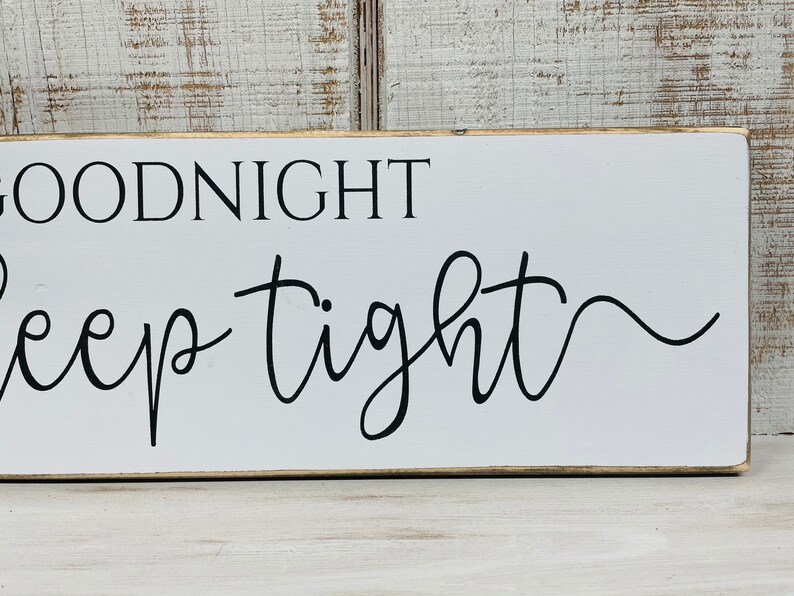 GOODNIGHT
leep tight